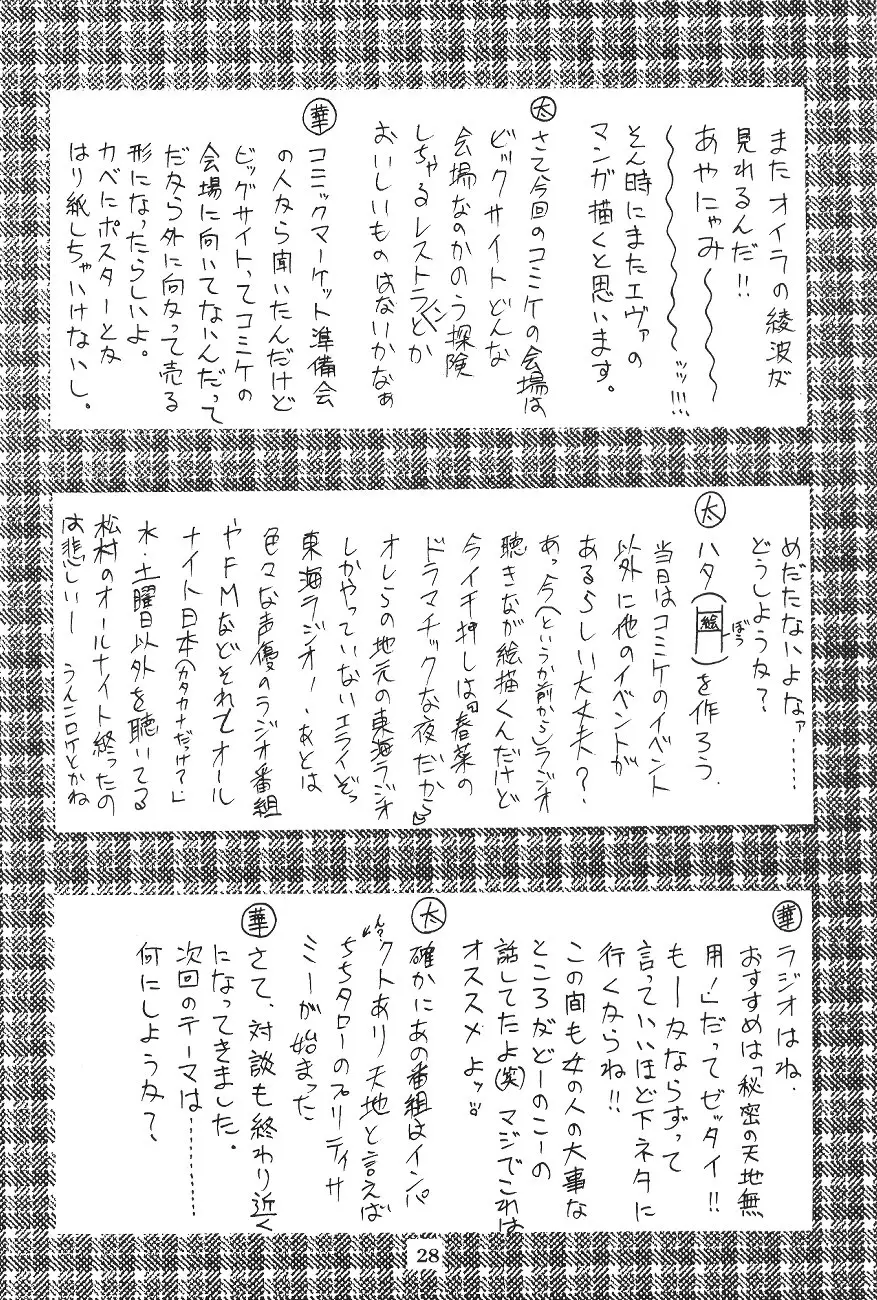 またオイラの綾波が
見れるんだ!!
あやにゃみ〜〜〜
〜〜〜〜〜ッッ!!!
そん時にまたエヴァの
マンガ描くと思います。
太 さて今回のコミケの会場は
ビックサイトどんな
会場なのかのう探険
しちゃるレストランとか
おいしいものはないかなぁ
華 コミックマーケット準備会
の人から聞いたんだけど
ビッグサイトってコミケの
会場に向いてないんだって
だから外に向かって売る
形になったらしいよ。
カベにポスターとか
はり紙しちゃいけないし。
めだたないよなァ……
どうしようか?
太 ハタ(絵 ぼう)を作ろう.
当日はコミケのイベント
以外に他のイベントが
あるらしい大丈夫?
あっ今(というか前から)ラジオ
聴きなが絵描くんだけど
今イチ押しは「春菜の
ドラマチックな夜だから」
オレらの地元の東海ラジオ
しかやっていないエライぞっ
東海ラジオ!、あとは
色々な声優のラジオ番組
やFMなどそれとオール
ナイト日本(カタカナだっけ?)
水・土曜日以外を聴いてる
松村のオールナイト終ったの
は悲しいー
華 ラジオはね.
おすすめは「秘密の天地無
用!」だってゼッタイ!!
もーかならずって
言っていいほど下ネタに
行くからね!!
この間も女の人の大事な
ところがどーのこーの
話してたよ(笑)マジでこれは
オススメよッ
太 確かにあの番組はインパ
クトあり天地と言えば
ちちタローのプリティサ
ミーが始まった
華 さて、対談も終わり近く
になってきました。
次回のテーマは………
何にしようか?
28